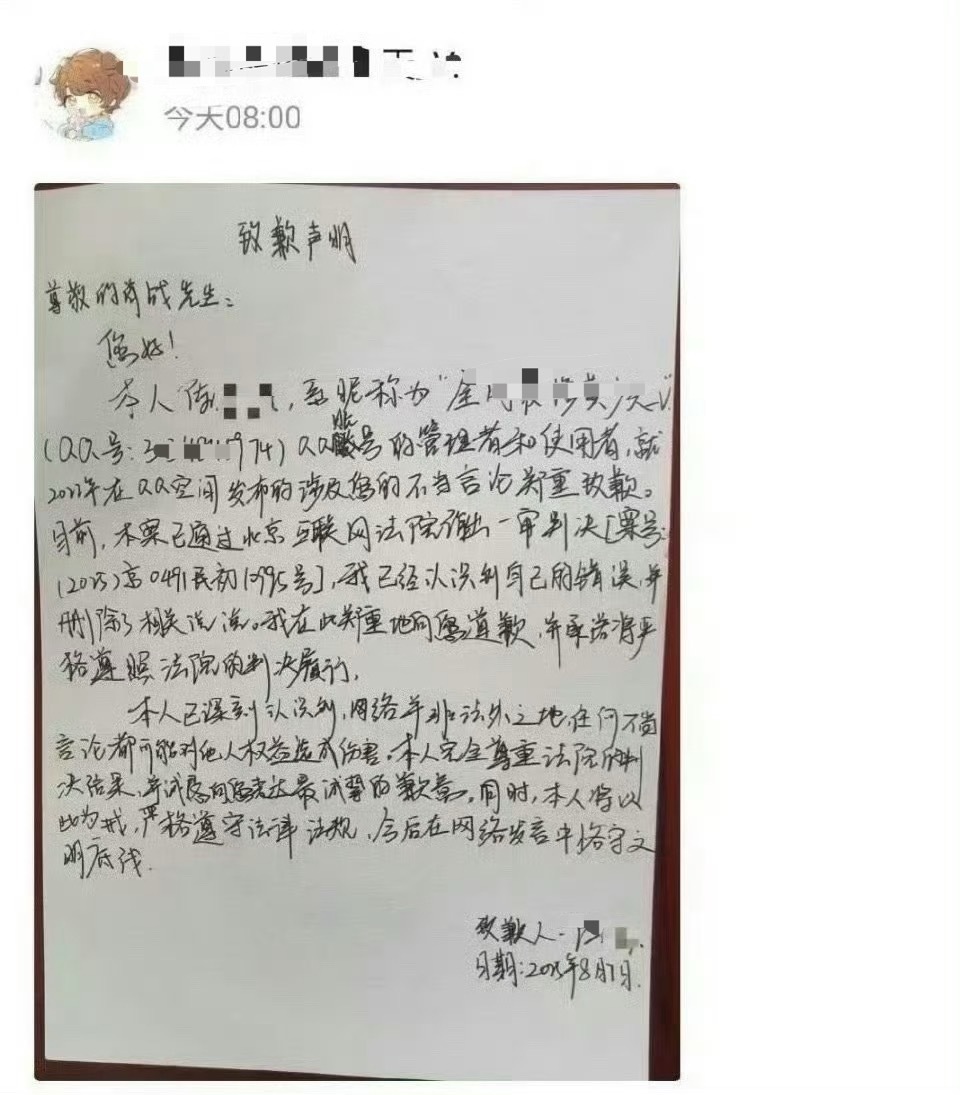 今天08:00
致歉声明
尊敬的肖战先生:
您好!
本人陈,系昵称为"全
(QQ号:3 974)QQ账号的管理者和使用者,就
2023年在QQ空间发布的涉及您的不当言论郑重致歉。
目前,本案已通过北京互联网法院作出一审判决[案号:
(2025)京0491民初1995号],我已经认识到自己的错误,并
删除了相关说说。我在此郑重地向您道歉,并承诺将严
格遵照法院的判决履行。
本人已深刻认识到,网络并非法外之地,任何不当
言论都可能对他人权益造成伤害。本人完全尊重法院的判
决结果,并诚恳向您表达最诚挚的歉意。同时,本人将以
此为戒,严格遵守法律法规,今后在网络发言中恪守文
明底线.
致歉人:
日期:2025年8月7日.